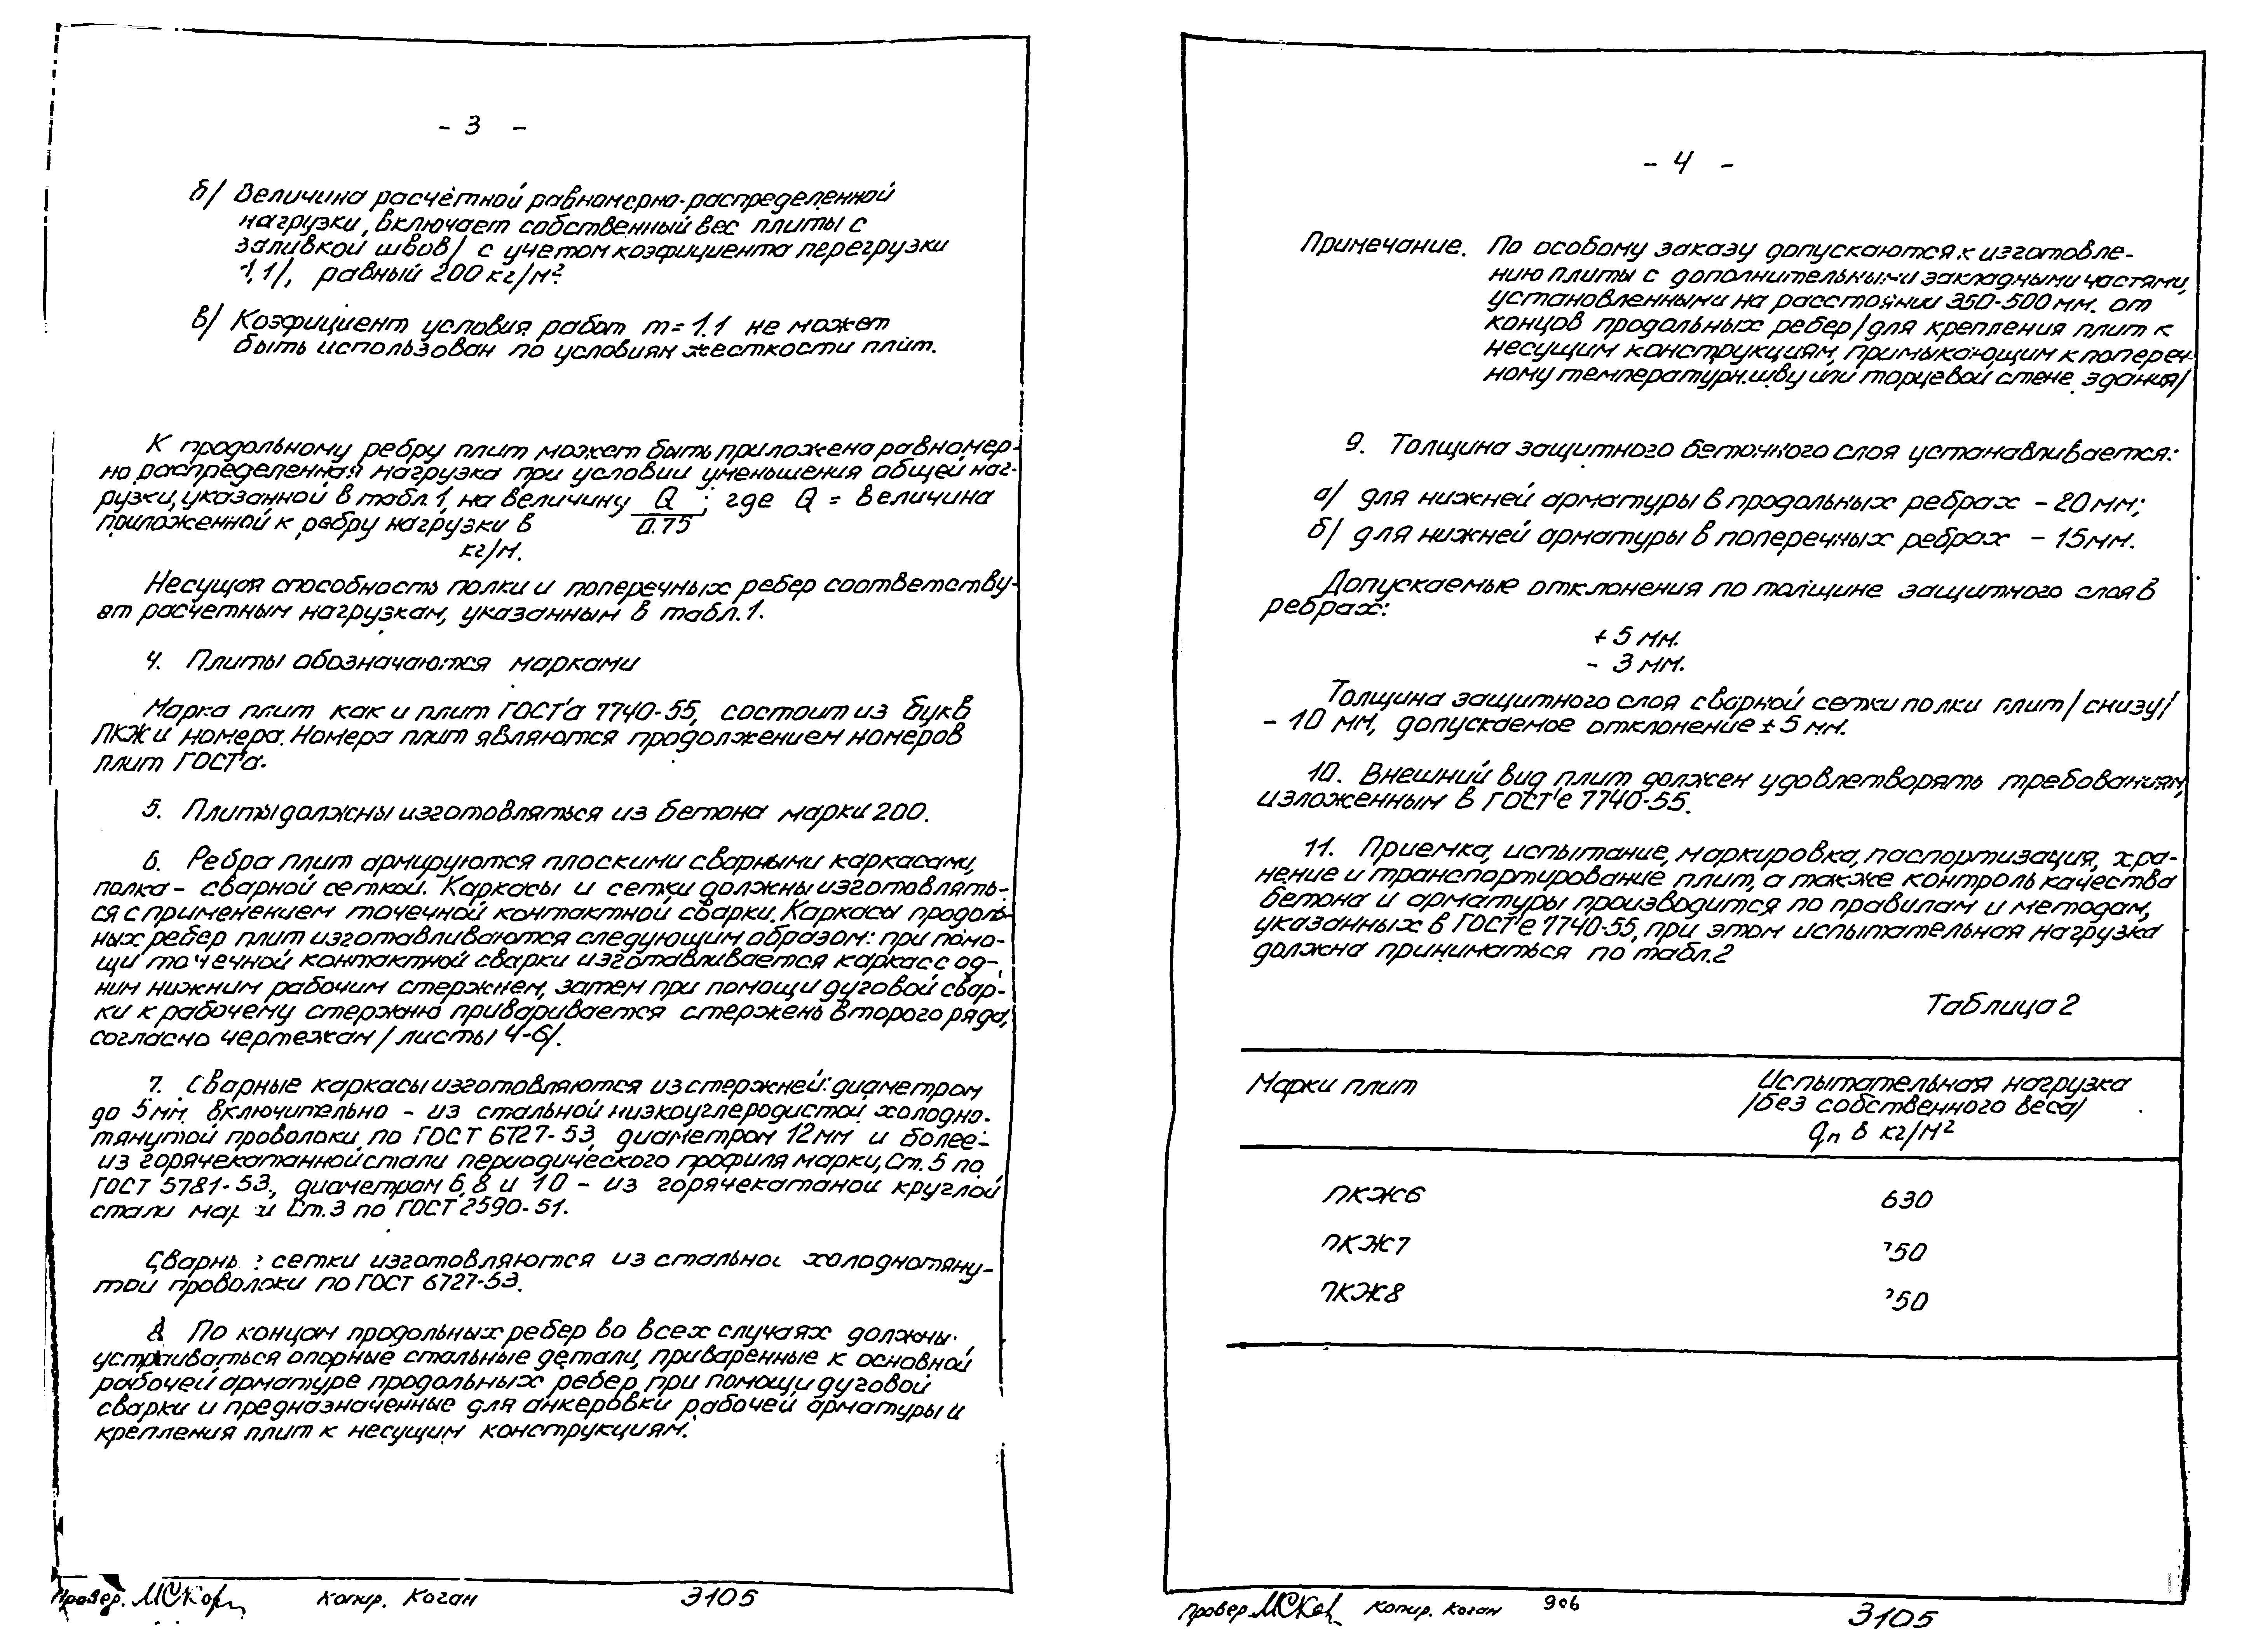 - 3 -
б/ Величина расчётной равномерно-распределенной
нагрузки, включает собственный вес плиты с
заливкой швов/ с учетом коэфициента перегрузки
1,1/, равный 200 кг/м².
в/ Коэфициент условия работ m=1.1 не может
быть использован по условиям жесткости плит.
К продольному ребру плит может быть приложена равномер-
но распределенная нагрузка при условии уменьшения общей наг-
рузки, указанной в табл. 1, на величину Q / 0.75 ; где Q = величина
приложенной к ребру нагрузки в
кг/м.
Несущая способность полки и поперечных ребер соответству-
ет расчетным нагрузкам, указанным в табл. 1.
4. Плиты обозначаются марками
Марка плит как и плит ГОСТ'а 7740-55, состоит из букв
ПКЖ и номера. Номера плит являются продолжением номеров
плит ГОСТ'а.
5. Плиты должны изготовляться из бетона марки 200.
6. Ребра плит армируются плоскими сварными каркасами,
полка - сварной сеткой. Каркасы и сетки должны изготовлять-
ся с применением точечной контактной сварки. Каркасы продоль-
ных ребер плит изготавливаются следующим образом: при помо-
щи точечной контактной сварки изготавливается каркас с од-
ним нижним рабочим стержнем, затем при помощи дуговой свар-
ки к рабочему стержню приваривается стержень второго ряда,
согласно чертежам /листы 4-6/.
7. Сварные каркасы изготовляются из стержней: диаметром
до 5 мм включительно - из стальной низкоуглеродистой холодно-
тянутой проволоки по ГОСТ 6727-53, диаметром 12 мм и более -
из горячекатанной стали периодического профиля марки, Ст. 5 по
ГОСТ 5781-53, диаметром 6, 8 и 10 - из горячекатаной круглой
стали мар и Ст. 3 по ГОСТ 2590-51.
Сварнь сетки изготовляются из стально холоднотяну-
той проволоки по ГОСТ 6727-53.
8. По концам продольных ребер во всех случаях должны
устраиваться опорные стальные детали, приваренные к основной
рабочей арматуре продольных ребер при помощи дуговой
сварки и предназначенные для анкеровки рабочей арматуры и
крепления плит к несущим конструкциям.
Провер. Копир. Коган 3105
- 4 -
Примечание. По особому заказу допускаются к изготовле-
нию плиты с дополнительными закладными частями,
установленными на расстоянии 350-500 мм. от
концов продольных ребер /для крепления плит к
несущим конструкциям, примыкающим к попереч-
ному температурн. шву или торцевой стене здания/
9. Толщина защитного бетонного слоя устанавливается:
а/ для нижней арматуры в продольных ребрах - 20 мм;
б/ для нижней арматуры в поперечных ребрах - 15 мм.
Допускаемые отклонения по толщине защитного слоя в
ребрах:
+ 5 мм.
- 3 мм.
Толщина защитного слоя сварной сетки полки плит /снизу/
- 10 мм, допускаемое отклонение ± 5 мм.
10. Внешний вид плит должен удовлетворять требованиям,
изложенным в ГОСТ'е 7740-55.
11. Приемка, испытание, маркировка, паспортизация, хра-
нение и транспортирование плит, а также контроль качества
бетона и арматуры производится по правилам и методам,
указанных в ГОСТ'е 7740-55, при этом испытательная нагрузка
должна приниматься по табл. 2
Таблица 2
Марки плит Испытательная нагрузка
/без собственного веса/
qп в кг/м²
ПКЖ6 630
ПКЖ7 50
ПКЖ8 50
Провер. Копир. Коган 906 3105